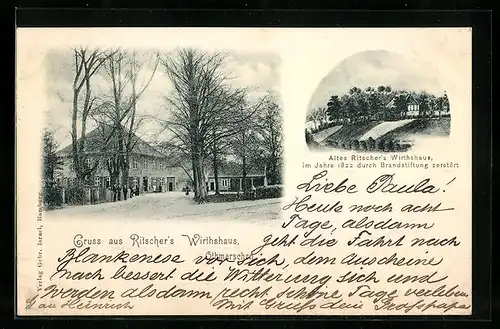 Altes Ritscher's Wirthshaus,
im Jahre 1822 durch Brandstiftung zerstört
Liebe Paula!
Heute noch acht
Tage, alsdann
geht die Fahrt nach
Gruss aus Ritscher's Wirthshaus,
Othmarschen.
Blankenese vor sich, dem anscheine
nach bessert die Witterung sich und
werden alsdann recht schöne Tage verleben
Mit Gruß dein Großpapa
au Heinrich
Verlag Gebr. Israel, Hamburg